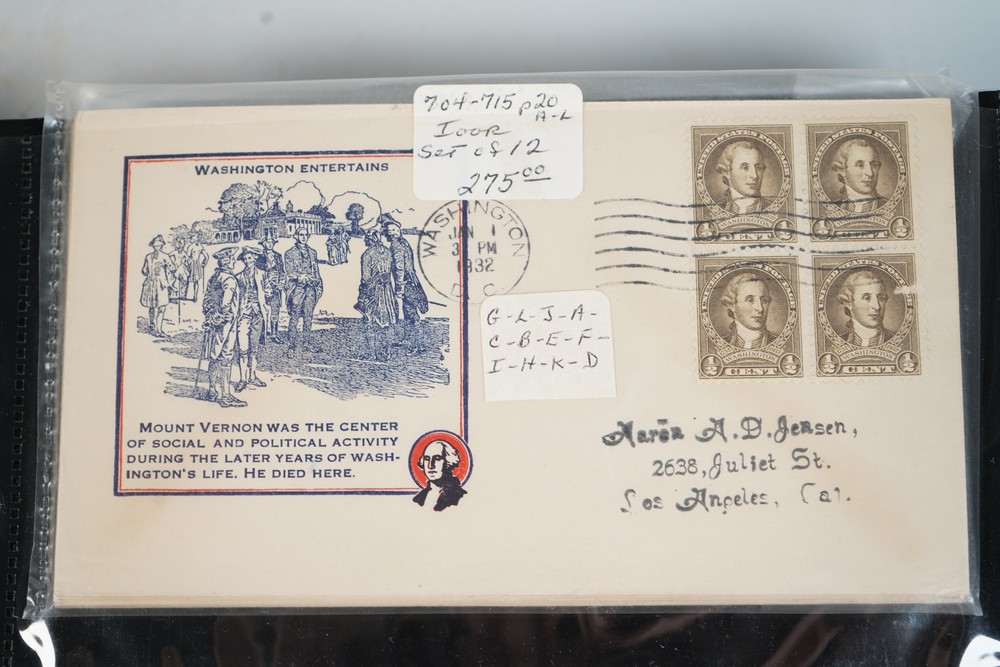 704-715 p20
A-L
IOOR
Set of 12
275 00
WASHINGTON ENTERTAINS
WASHINGTON
JAN 1
3 PM
1932
D.C.
G-L-J-A-
C-B-E-F-
I-H-K-D
MOUNT VERNON WAS THE CENTER
OF SOCIAL AND POLITICAL ACTIVITY
DURING THE LATER YEARS OF WASH-
INGTON'S LIFE. HE DIED HERE.
UNITED STATES POSTAGE
WASHINGTON
1/2 CENT 1/2
UNITED STATES POSTAGE
WASHINGTON
1/2 CENT 1/2
UNITED STATES POSTAGE
WASHINGTON
1/2 CENT 1/2
UNITED STATES POSTAGE
WASHINGTON
1/2 CENT 1/2
Aaron A.D. Jensen,
2638, Juliet St.
Los Angeles, Cal.